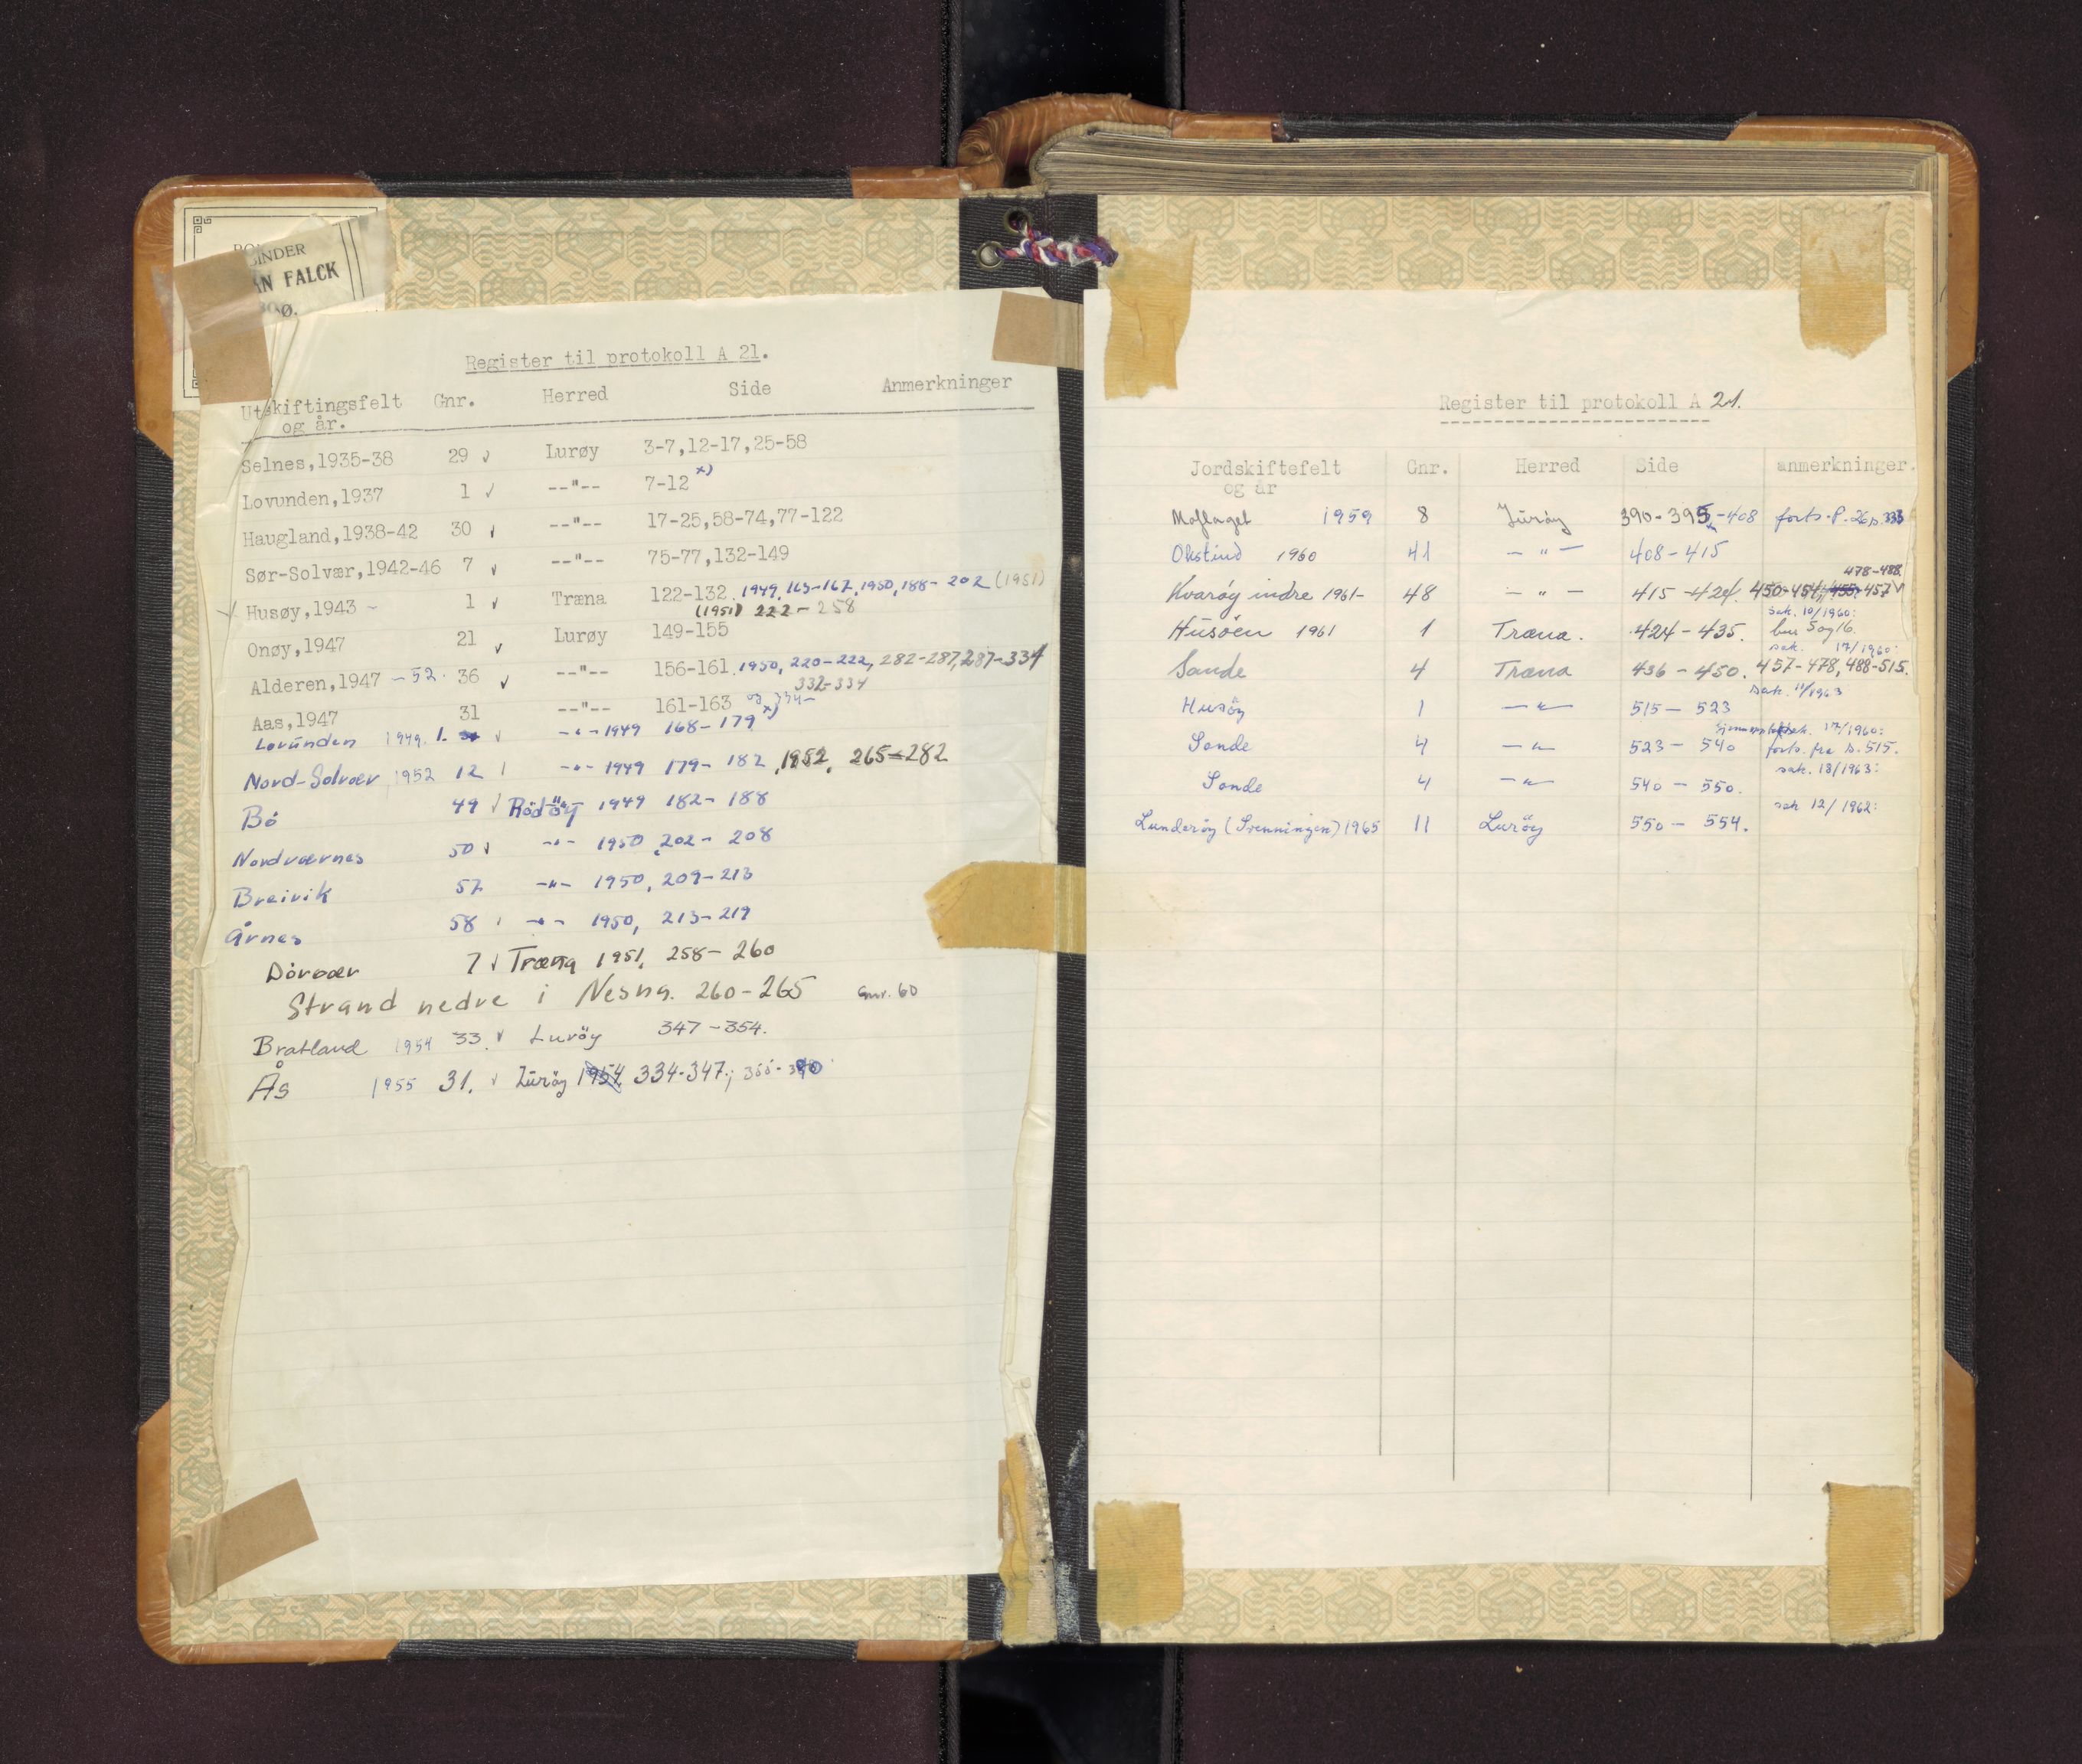 BINDER
AN FALCK
Register til protokoll A 21.
Utskiftingsfelt og år. Gnr. Herred Side Anmerkninger
Selnes,1935-38 29 √ Lurøy 3-7,12-17,25-58
Lovunden,1937 1 √ --"-- 7-12 x)
Haugland,1938-42 30 √ --"-- 17-25,58-74,77-122
Sør-Solvær,1942-46 7 √ --"-- 75-77,132-149
Husøy,1943 - 1 √ Træna 122-132. 1949, 163-167, 1950, 188-202 (1951)
(1951) 222-258
Onøy,1947 21 √ Lurøy 149-155
Alderen,1947 -52. 36 √ --"-- 156-161. 1950, 220-222, 282-287, 287-334
332-334
Aas,1947 31 --"-- 161-163 og 334-
Lovunden 1949. 1. √ -"- 1949 168-179 x)
Nord-Solvær 1952 12 -"- 1949 179-182, 1952, 265-282
Bö 49 √ Rödöy 1949 182-188
Nordværnes 50 √ -"- 1950 202-208
Breivik 57 -"- 1950, 209-213
Årnes 58 -"- 1950, 213-219
Dörvær 7 √ Træna 1951, 258-260
Strand nedre i Nesna. 260-265 Gnr. 60
Bratland 1954 33. √ Luröy 347-354.
Ås 1955 31. √ Luröy 1954 334-347.; 355-390
Register til protokoll A 21.
Jordskiftefelt og år Gnr. Herred Side anmerkninger.
Moflaget 1959 8 Luröy 390-395-408 forts. P. 26 p. 333
Okstind 1960 41 - " - 408-415
478-488.
Kvaröy indre 1961- 48 - " - 415-424. 450-454, 455-457 √
sak. 10/1960:
Husöen 1961 1 Træna. 424-435. bnr 5 og 16.
sak. 17/1960:
Sande 4 Træna 436-450. 457-478, 488-515.
sak. 11/1963
Husöy 1 -"- 515-523
sak. 17/1960:
Sande 4 -"- 523-540 forts. fra s. 515.
sak. 18/1963:
Sande 4 -"- 540-550.
sak 12/1962:
Lunderöy (Svenningen) 1965 11 Luröy 550-554.